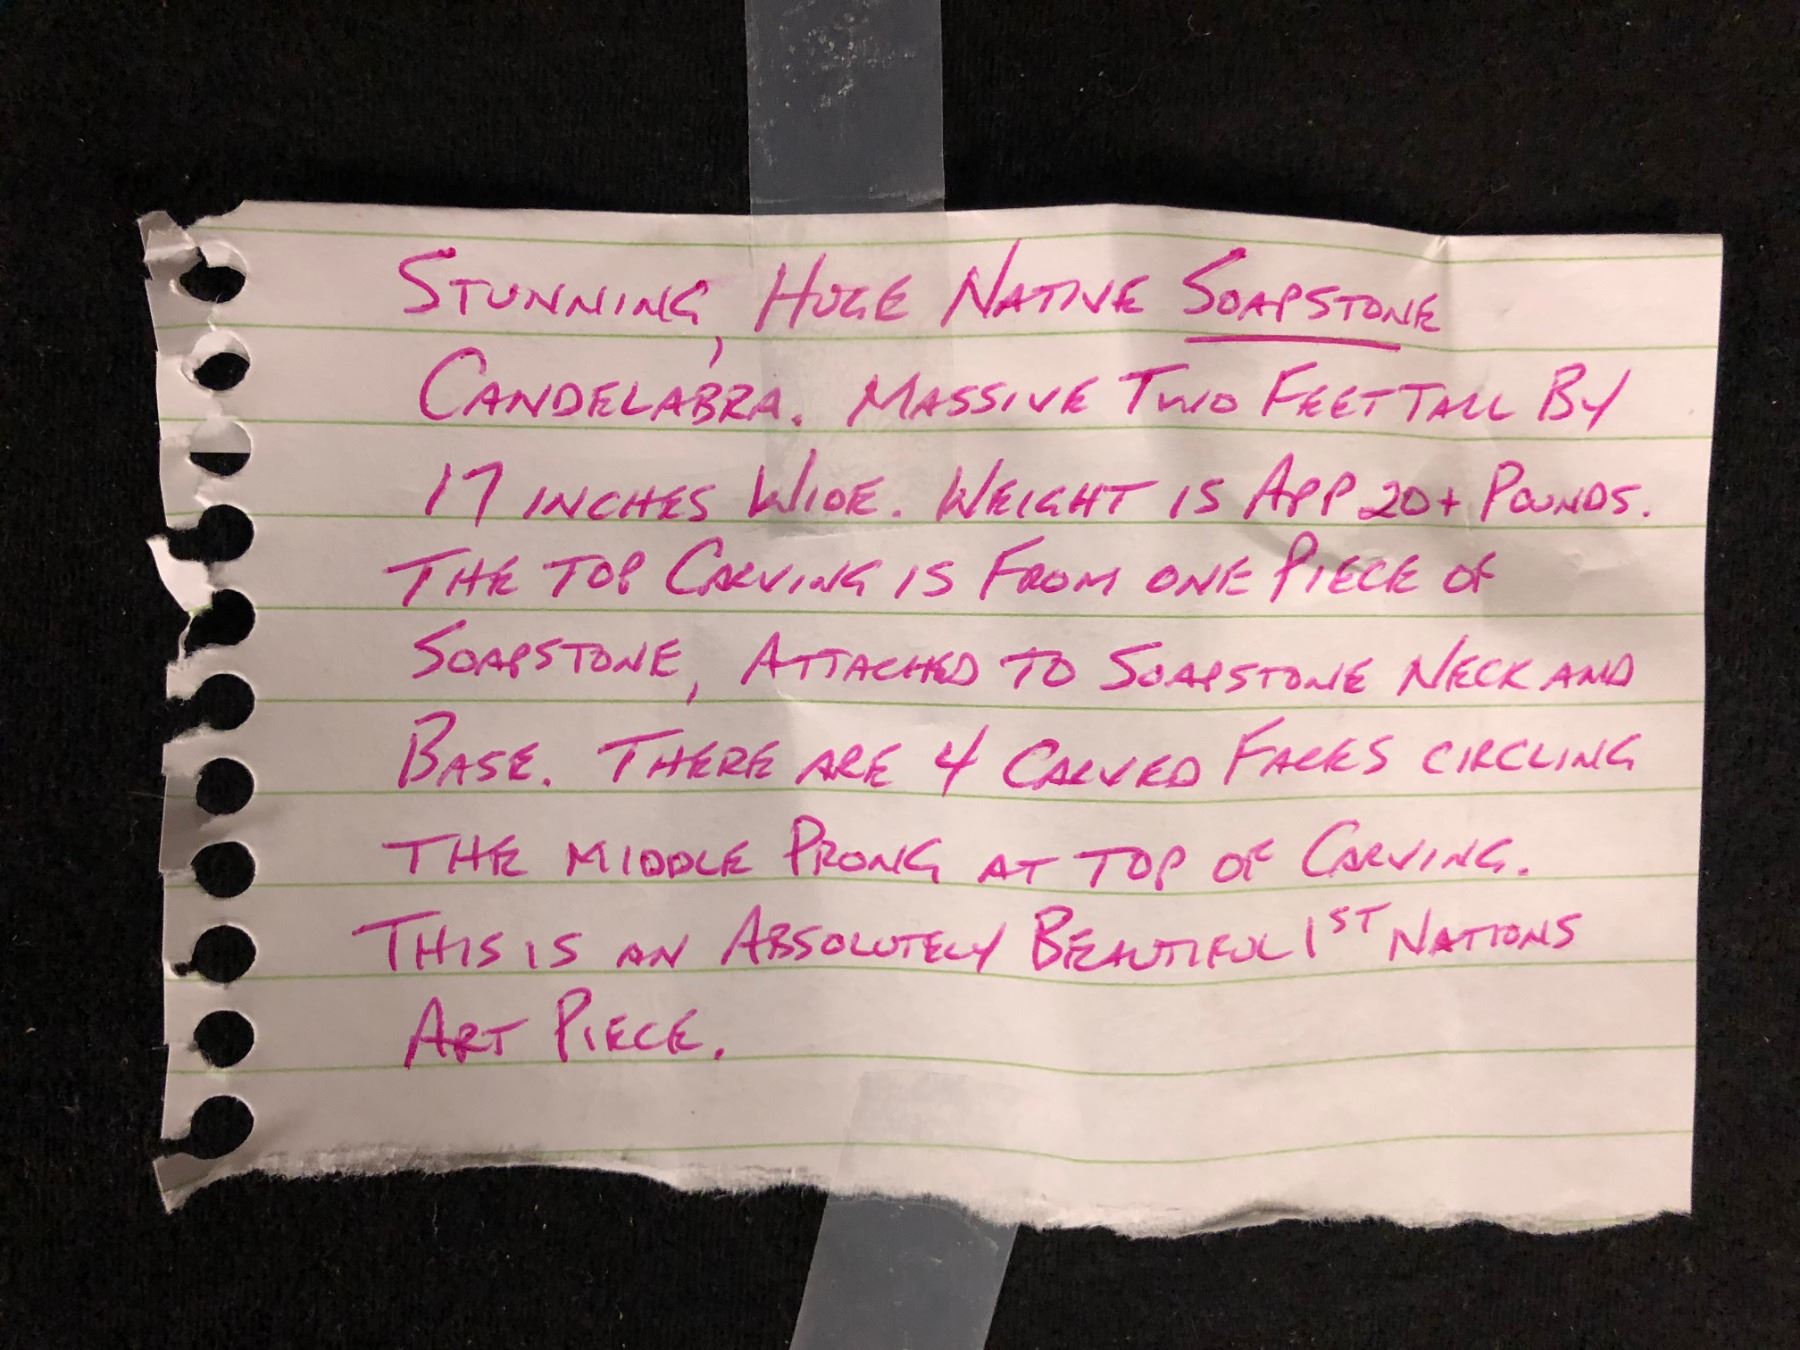 STUNNING, HUGE NATIVE SOAPSTONE
CANDELABRA. MASSIVE TWO FEET TALL BY
17 INCHES WIDE. WEIGHT IS APP 20+ POUNDS.
THE TOP CARVING IS FROM ONE PIECE OF
SOAPSTONE, ATTACHED TO SOAPSTONE NECK AND
BASE. THERE ARE 4 CARVED FACES CIRCLING
THE MIDDLE PRONG AT TOP OF CARVING.
THIS IS AN ABSOLUTELY BEAUTIFUL 1ST NATIONS
ART PIECE.